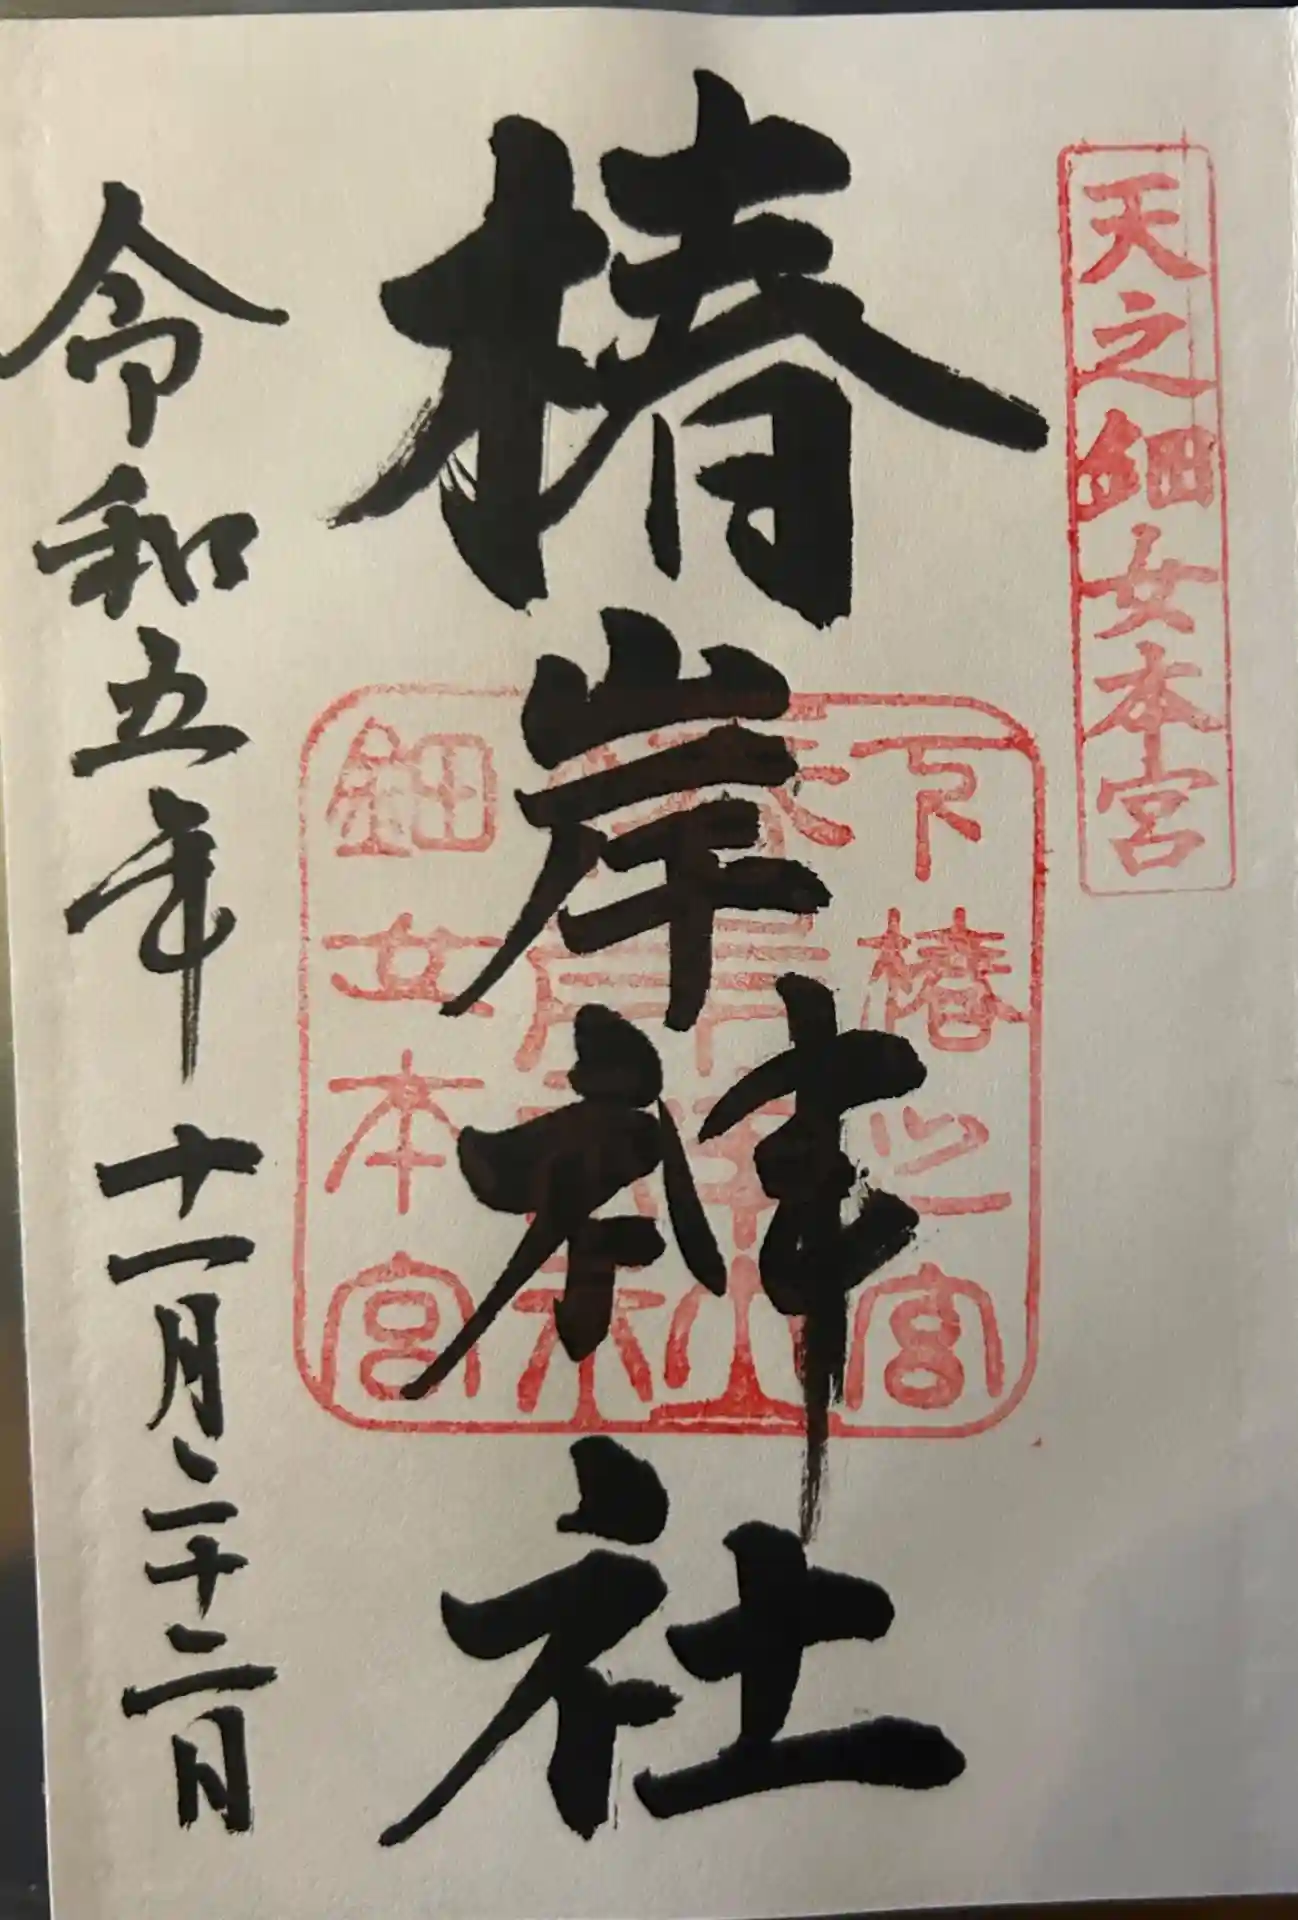 天之鈿女本宮
椿岸神社
下椿之宮
椿岸神社
鈿女本宮
令和五年十一月二十二日